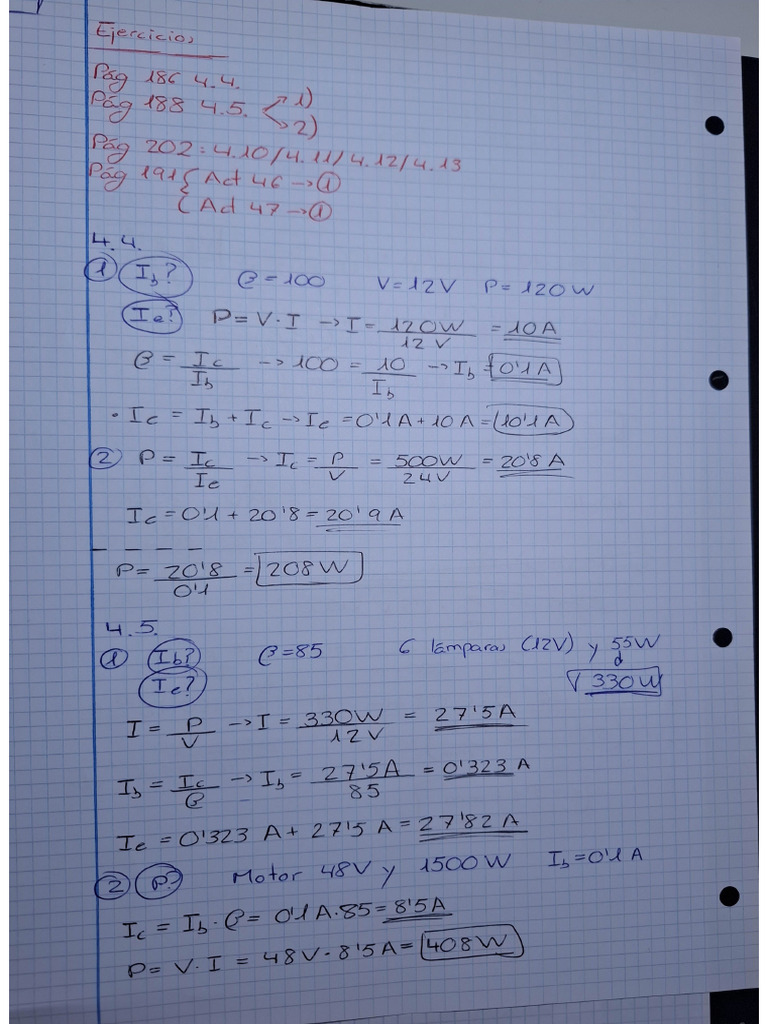 Ejercicios
Pág 186 4.4.
Pág 188 4.5. < 1)
2)
Pág 202: 4.10/4.11/4.12/4.13
Pág 191 { Act 46 → ①
{ Act 47 → ①
4.4.
① Ib? β = 100 V = 12V P = 120W
Ie? P = V · I → I = 120W / 12V = 10A
β = Ic / Ib → 100 = 10 / Ib → Ib = 0'1A
· Ie = Ib + Ic → Ie = 0'1A + 10A = 10'1A
② β = Ic / Ie → Ic = P / V = 500W / 24V = 20'8A
Ie = 0'1 + 20'8 = 20'9A
β = 20'8 / 0'1 = 208W
4.5.
① Ib? β = 85 6 lámparas (12V) y 55W
Ie? 330W
I = P / V → I = 330W / 12V = 27'5A
Ib = Ic / β → Ib = 27'5A / 85 = 0'323A
Ie = 0'323A + 27'5A = 27'82A
② P? Motor 48V y 1500W Ib = 0'1A
Ic = Ib · β = 0'1A · 85 = 8'5A
P = V · I = 48V · 8'5A = 408W